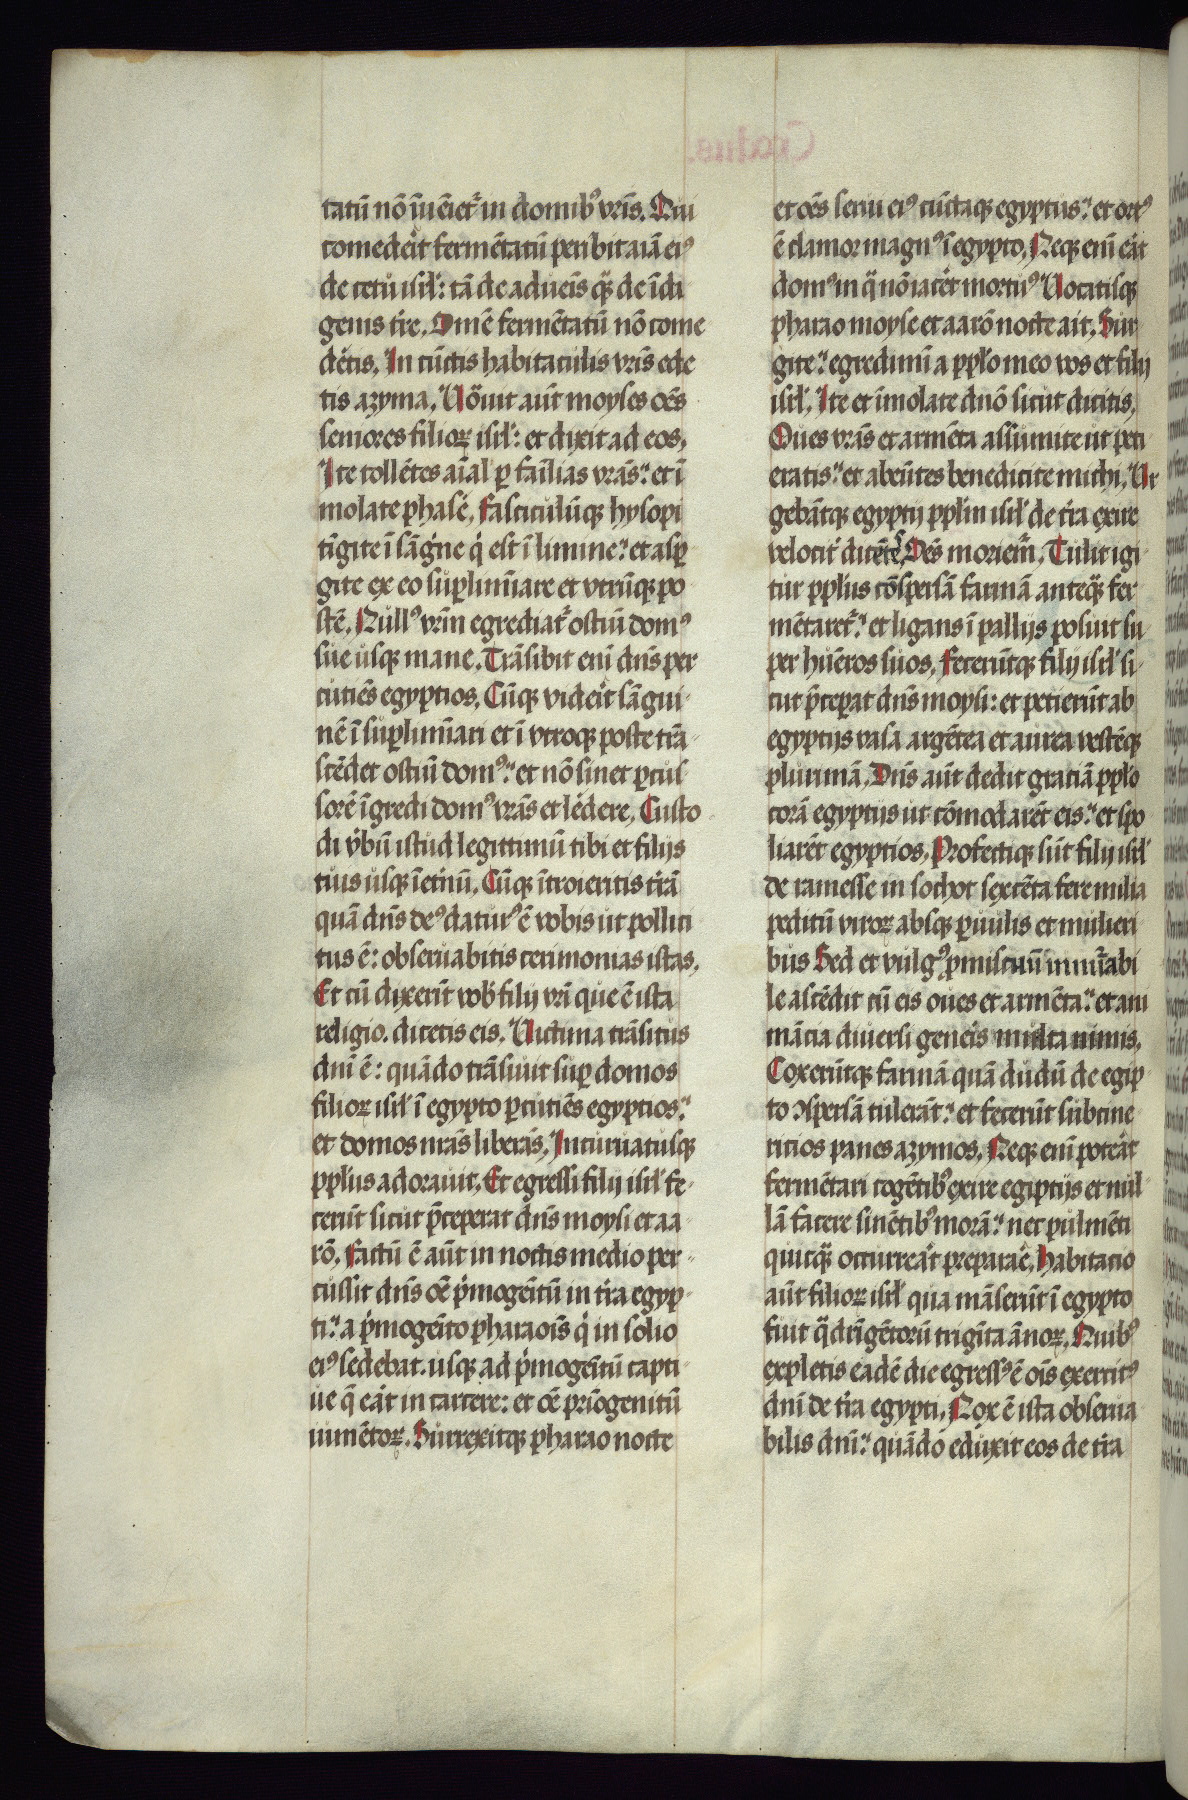 tatū nō īuēiet᷑ in domib⁹ vr̄is. Qui
comedeīt fermētatū peribit aīa ei⁹
de cetu isrl̄: tā de aduēis q̄ȝ de īdi
genis tr̄e. Omē fermētatū nō come
dētis. In cūctis habitaculis vr̄is ede
tis azyma. Uöuit aūt moyses oēs
seniores filioꝝ isrl̄: et dixit ad eos.
Ite tollētes aīal ꝑ faīlias vrās: et ī
molate phase. Fasciculūqꝫ hysopi
tīgite ī sāgīne q̇ est ī limine: et asꝑ
gite ex eo suꝑlimīare et vtrūqꝫ po
stē. Null⁹ vrm̄ egrediat᷑ ostiū dom⁹
sue usqꝫ mane. Trāsibit eni dn̄s per
cutiēs egyptios. Cūqꝫ videīt sāgui
nē ī suꝑlimīari et ī vtroqꝫ poste trā
scēdet ostiū dom⁹: et nō sinet ꝑcus
sorē īgredi dom⁹ vrās et ledere. Custo
di v̇bū istud legittimū tibi et filijs
tuis usqꝫ ī et̄nū. Cūqꝫ ītroieritis tr̄ā
quā dn̄s de⁹ datur⁹ ē vobis ut pollici
tus ē: obseruabitis cerimonias istas.
Et cū dixerīt vob̄ filij vr̄i que ē ista
religio. dicetis eis. Uictima trāsitus
dn̄i ē: quādo trāsiuit suꝑ domos
filioꝝ isrl̄ ī egypto ꝑcutiēs egyptios:
et domos nrās liberās. Incuruatusqꝫ
ppl̄us adorauit. Et egressi filij isrl̄ fe
cerūt sicut p̄ceperat dn̄s moysi et aa
rō. Factū ē aūt in noctis medio per
cussit dn̄s oē ṗmogēitū in tr̄a egyp
ti: a ṗmogēito pharaōis q̇ in solio
ei⁹ sedebat. usqꝫ ad ṗmogēitū capti
ue q̄ eāt in carcere: et oē prīogenitū
iumētoꝝ. Surrexitqꝫ pharao nocte
et oēs serui ei⁹ cūctaqꝫ egyptus: et ort⁹
ē clamor magn⁹ ī egypto. Neqꝫ eni eāt
dom⁹ in q̄ nō iacēt mortu⁹ Uocatisqꝫ
pharao moyse et aarō nocte ait. Sur
gite: egredimī a ppl̄o meo vos et filij
isrl̄. Ite et īmolate dn̄o sicut dicitis.
Oues vrās et armēta assumite ut peti
eratis: et abeūtes benedicite michi. Ur
gebātqꝫ egyptij ppl̄m isrl̄ de tr̄a exire
velocit᷑ dicētes. Oēs moriem᷑. Tulit igi
tur ppl̄us cōspersā farinā anteq̄ȝ fer
mētaret᷑: et ligans ī pallijs posuit su
per hūeros suos. Fecerūtqꝫ filij isrl̄ si
cut p̄ceꝑat dn̄s moysi: et petierūt ab
egyptijs vasa argētea et aurea vestēqꝫ
plurimā. Dn̄s aūt dedit gratiā ppl̄o
corā egyptijs ut cōmodarēt eis: et spo
liarēt egyptios. Profectiqꝫ sūt filij isrl̄
de ramesse in sochot sexcēta fere milia
peditū viroꝝ absqꝫ ꝑuulis et mulieri
bus Sed et vulg⁹ ꝓmiscuū innūabi
le ascēdit cū eis oues et armēta: et ani
mācia diuersi genēis multa nimis.
Coxerūtqꝫ farinā quā dudū de egip
to ꝯspersā tulerāt: et fecerūt subcine
ricios panes azymos. Neqꝫ eni poteāt
fermētari cogētib⁹ exire egiptijs et nul
lā facere sinētib⁹ morā: nec pulmēti
quicq̄ȝ occurreāt preparaē. Habitacio
aūt filioꝝ isrl̄ qua māserūt ī egypto
fuit q̄drīgētorū trigīta ānoꝝ. Quib⁹
expletis eadē die egress⁹ ē oīs exercit⁹
dn̄i de tr̄a egypti. Nox ē ista obserua
bilis dn̄i: quādo eduxit eos de tr̄a